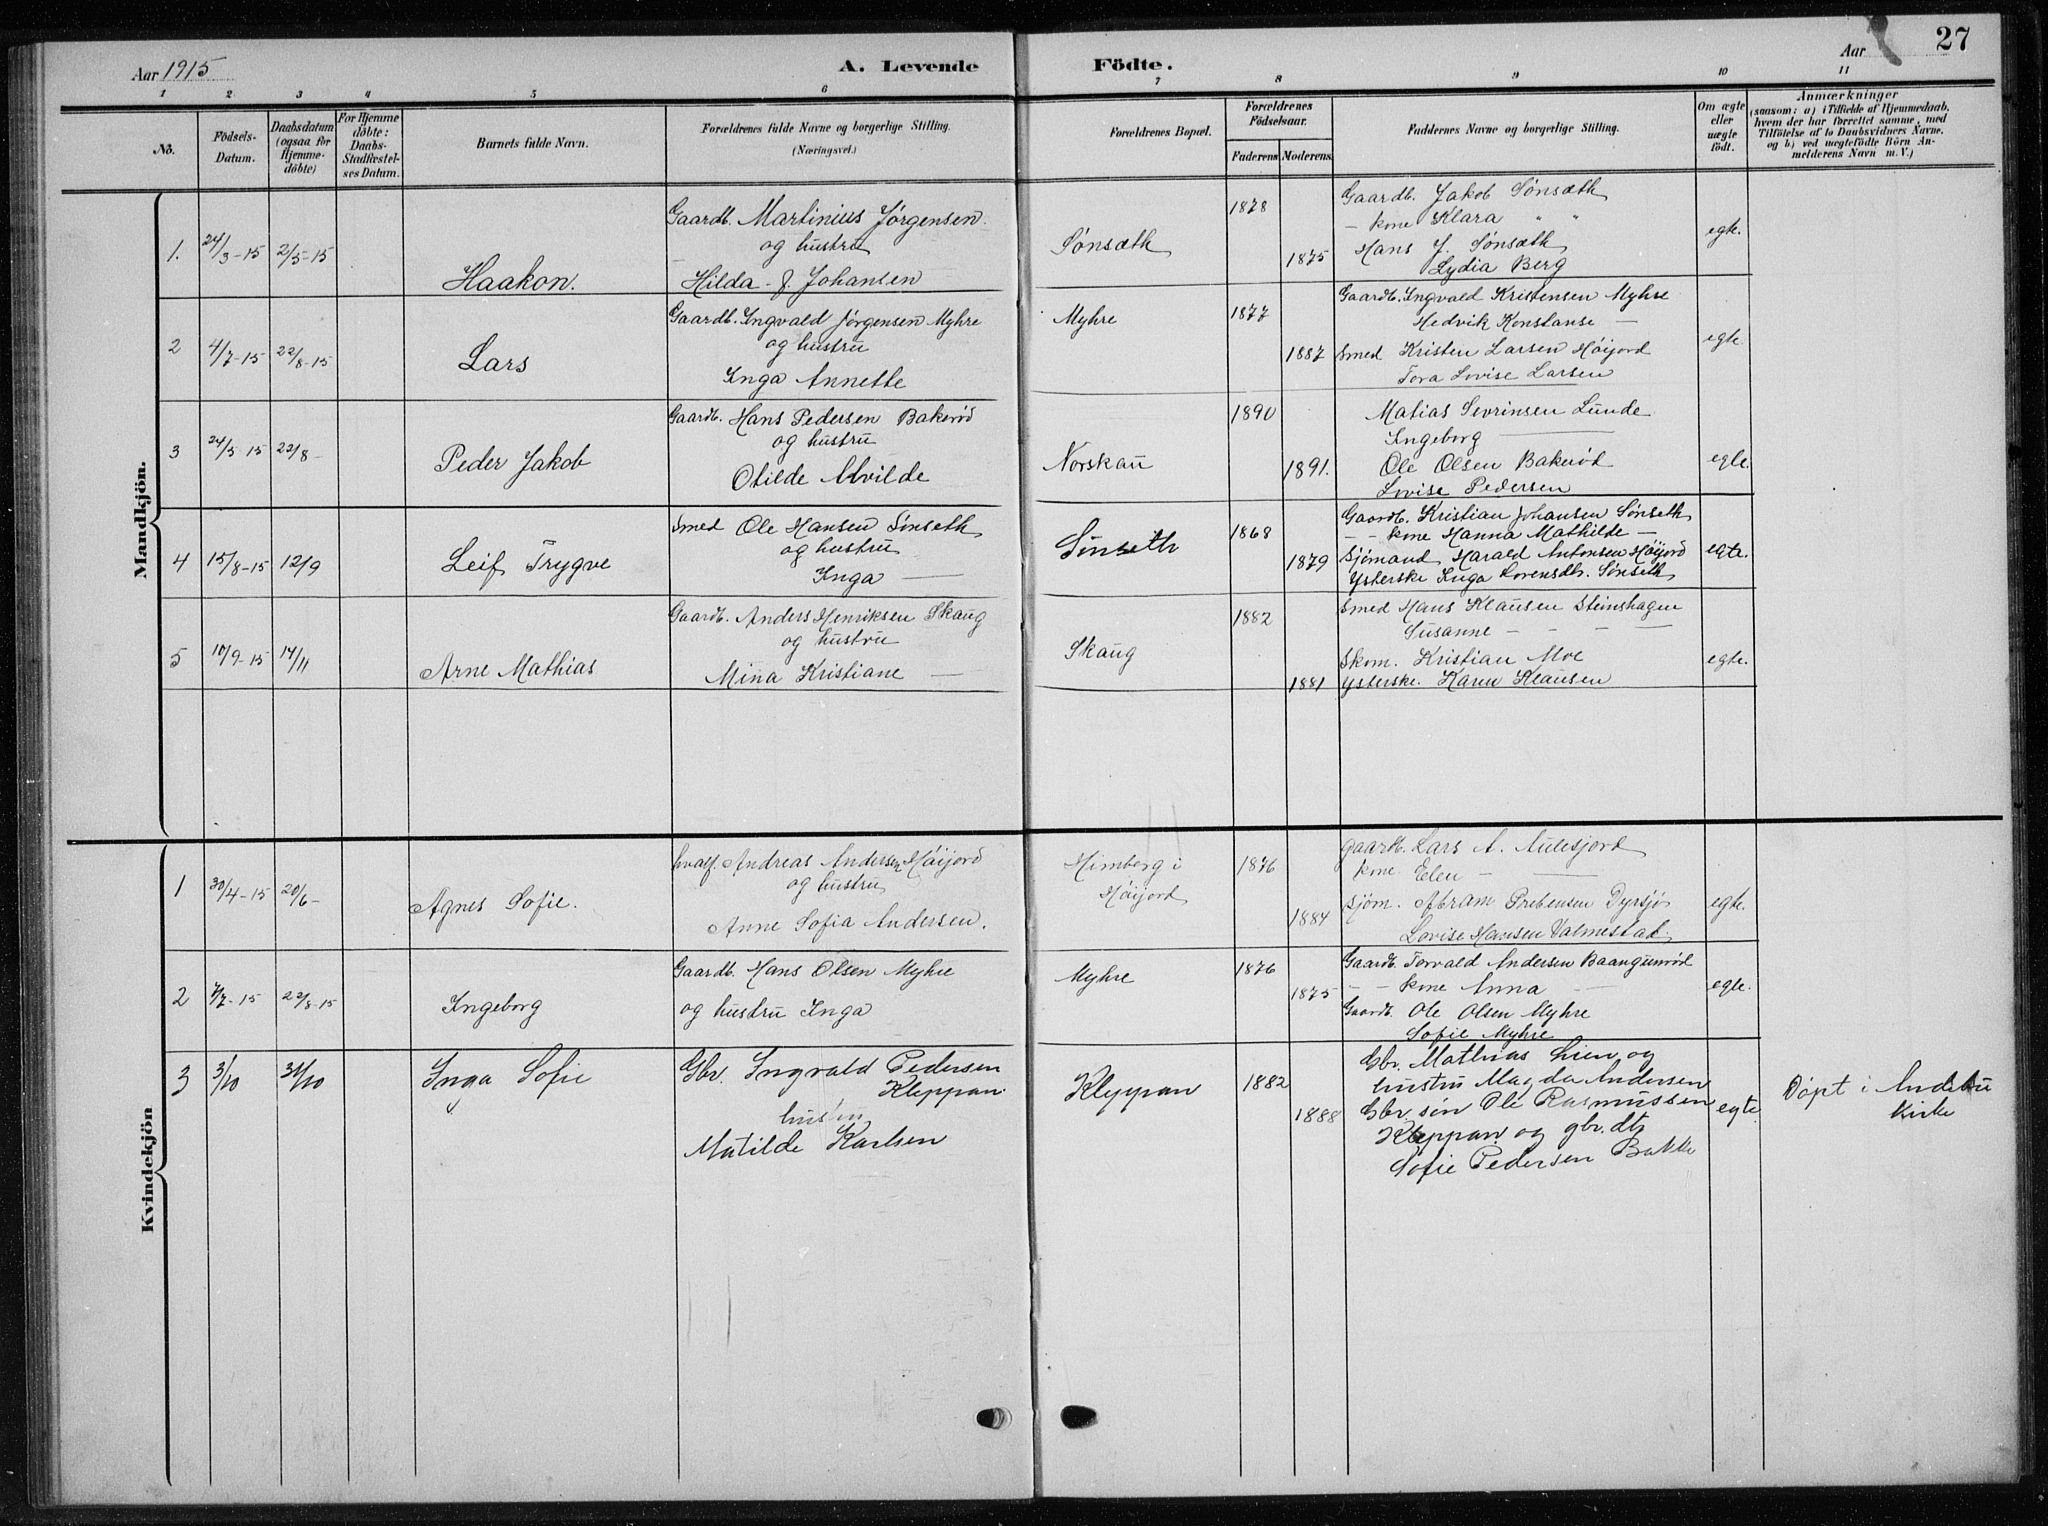 Aar 1915
A. Levende
Födte.
Aar
27
1 2 3 4 5 6 7 8 9 10 11
No.
Födsels-Datum.
Daabsdatum (ogsaa for Hjemme-döbte)
For Hjemme döbte: Daabs-Stadfæstel-ses Datum.
Barnets fulde Navn.
Forældrenes fulde Navne og borgerlige Stilling. (Næringsvei.)
Forældrenes Bopæl.
Forældrenes Födselsaar.
Faderens Moderens
Faddernes Navne og borgerlige Stilling.
Om ægte eller uægte födt.
Anmærkninger
(saasom: a) i Tilfælde af Hjemmedaab,
hvem der har forrettet samme, med
Tilföielse af to Daabsvidners Navne,
og b) ved uægtefödte Börn An-
melderens Navn m. V.)
Mandkjön.
1. 24/3-15 2/5-15
Haakon.
Gaardb. Martinius Jørgensen
og hustru
Hilda J. Johansen
Sønsæth
1878
1875
Gaardb. Jakob Sønsæth
- kone Klara " "
Hans J. Sønsæth
Lydia Berg
egte.
2 4/7-15 22/8-15
Lars
Gaardb. Ingvald Jørgensen Myhre
og hustru
Inga Annette
Myhre
1877
1887
Gaardb. Ingvald Kristensen Myhre
Hedvik Konstanse —
Smed Kristen Larsen Høijord
Tora Lovise Larsen
egte
3 24/5 15 22/8-
Peder Jakob
Gaardb. Hans Pedersen Bakerød
og hustru
Otilde Alvilde
Norskau
1890
1891.
Matias Sevrinsen Lunde
Ingeborg —
Ole Olsen Bakerød
Lovise Pedersen
egte.
4 15/8-15 12/9
Leif Trygve
Smed Ole Hansen Sønseth
og hustru
Inga —
Sønseth
1868
1879
Gaardb. Kristian Johansen Sønseth
- - kone Hanna Mathilde —
Sjömand Harald Antonsen Høijord
Ysterske Inga Lorensdtr. Sønseth
egte.
5 10/9-15 14/11
Arne Mathias
Gaardb. Anders Henriksen Skaug
og hustru
Mina Kristiane —
Skaug
1882
1881
Smed Hans Klausen Steinshagen
Susanne - - - —
Skom. Kristian Moe
Ysterske. Karen Klausen
egte.
Kvindekjön
1 30/4-15 20/6-
Agnes Sofie.
hvalf. Andreas Andersen Høijord
og hustru
Anne Sofia Andersen.
Himberg i
Høijord
1876
1884
gaardb. Lars A. Aulesjord
kone Elen - —
sjøm. Abram Prebensen Dyrsjø
Lovise Hansen Valmestad.
egte.
2 7/7-15 22/8-15
Ingeborg
Gaardb. Hans Olsen Myhre
og hustru Inga
Myhre
1876
1875
Gaardb. Torvald Andersen Baangunrød
- - kone Anna —
Gaardb. Ole Olsen Myhre
Sofie Myhre
egte.
3 3/10 31/10
Inga Sofie
Gbr. Ingvald Pedersen
Kleppan
hustru
Matilde Karlsen
Kleppan
1882
1888
Gbr. Mathias Lien og
hustru Magda Andersen
Gbr. søn Ole Rasmussen
Kleppan og gbr. dtr
Sofie Pedersen Bakke
egte
Døpt i Andebu
Kirke